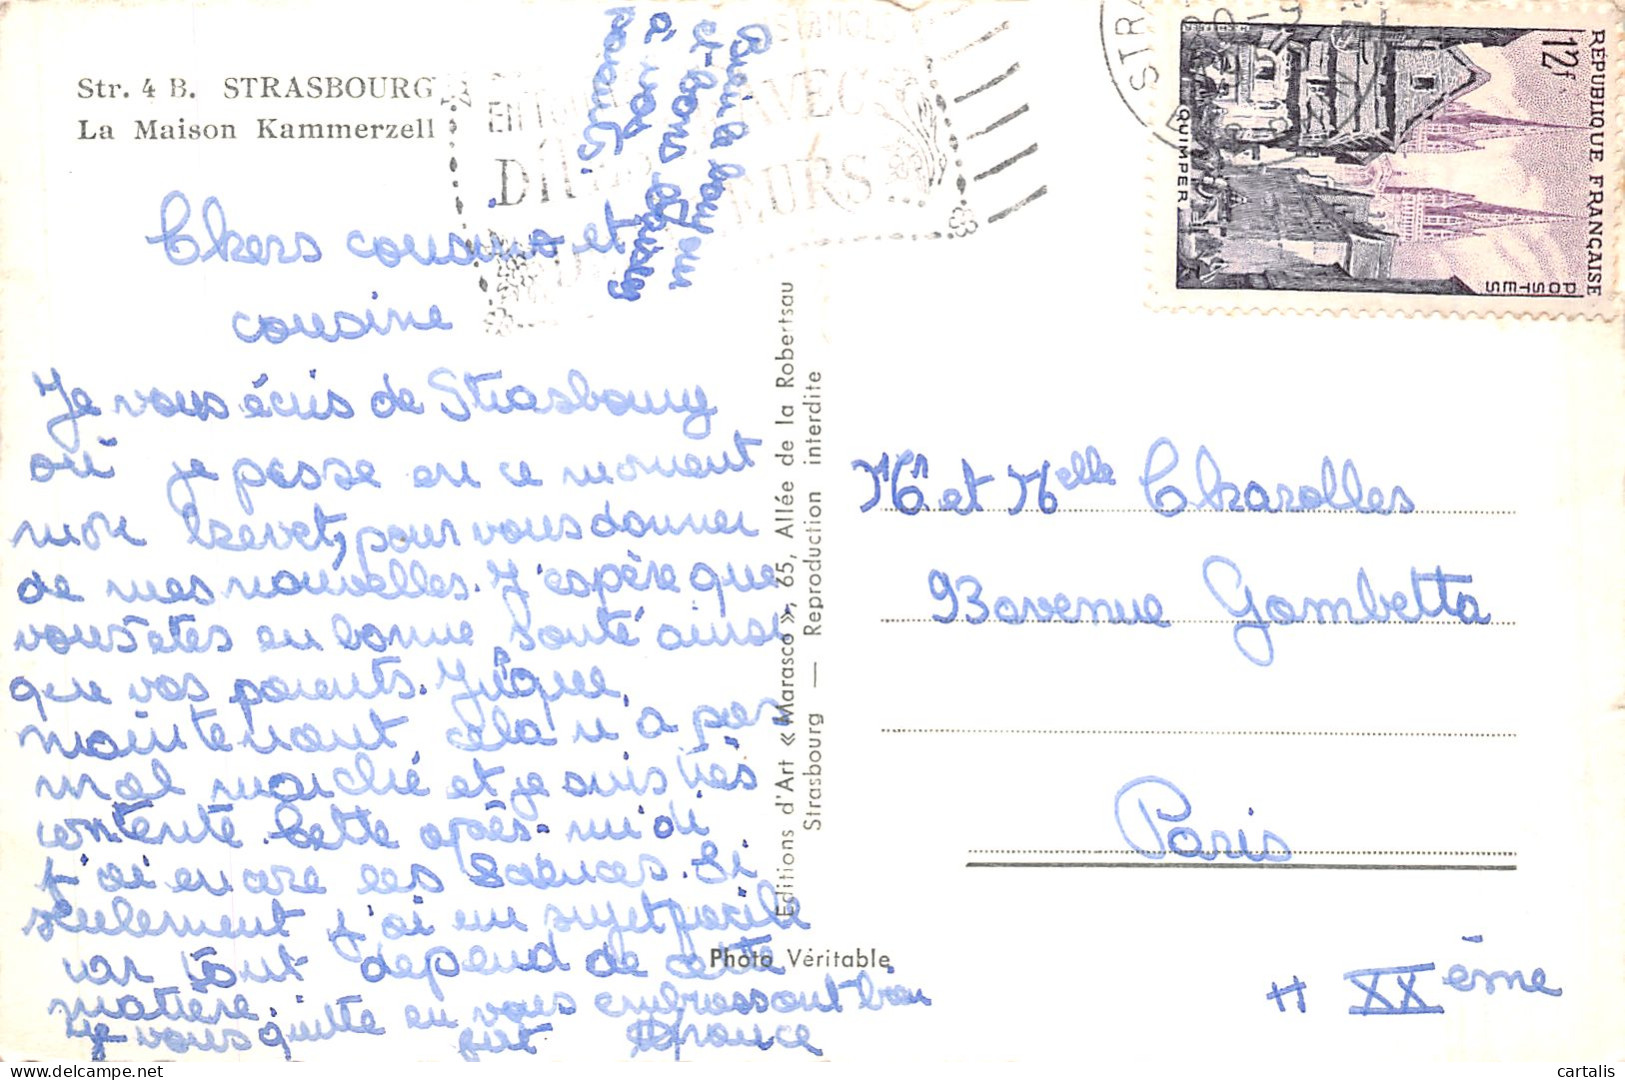 Str. 4 B. STRASBOURG
La Maison Kammerzell
Chers cousins et
cousine
Je vous écris de Strasbourg
où je passe en ce moment
mon brevet, pour vous donner
de mes nouvelles. J'espère que
vous êtes en bonne santé ainsi
que vos parents. Jusque
maintenant, cela n'a pas
mal marché et je suis très
contente. Cette après-midi
j'ai encore les sciences. Si
seulement j'ai un sujet facile
car tout dépend de cette
matière.
Je vous quitte en vous embrassant bien
fort France
à vos
parents.
Editions d'Art « Marasco », 65, Allée de la Robertsau
Strasbourg — Reproduction interdite
Photo Véritable
AVEC
DITES
FLEURS
STRA
REPUBLIQUE FRANÇAISE
12f
POSTES
QUIMPER
Mr et Melle Charolles
93 avenue Gambetta
Paris
XXème
cartalis